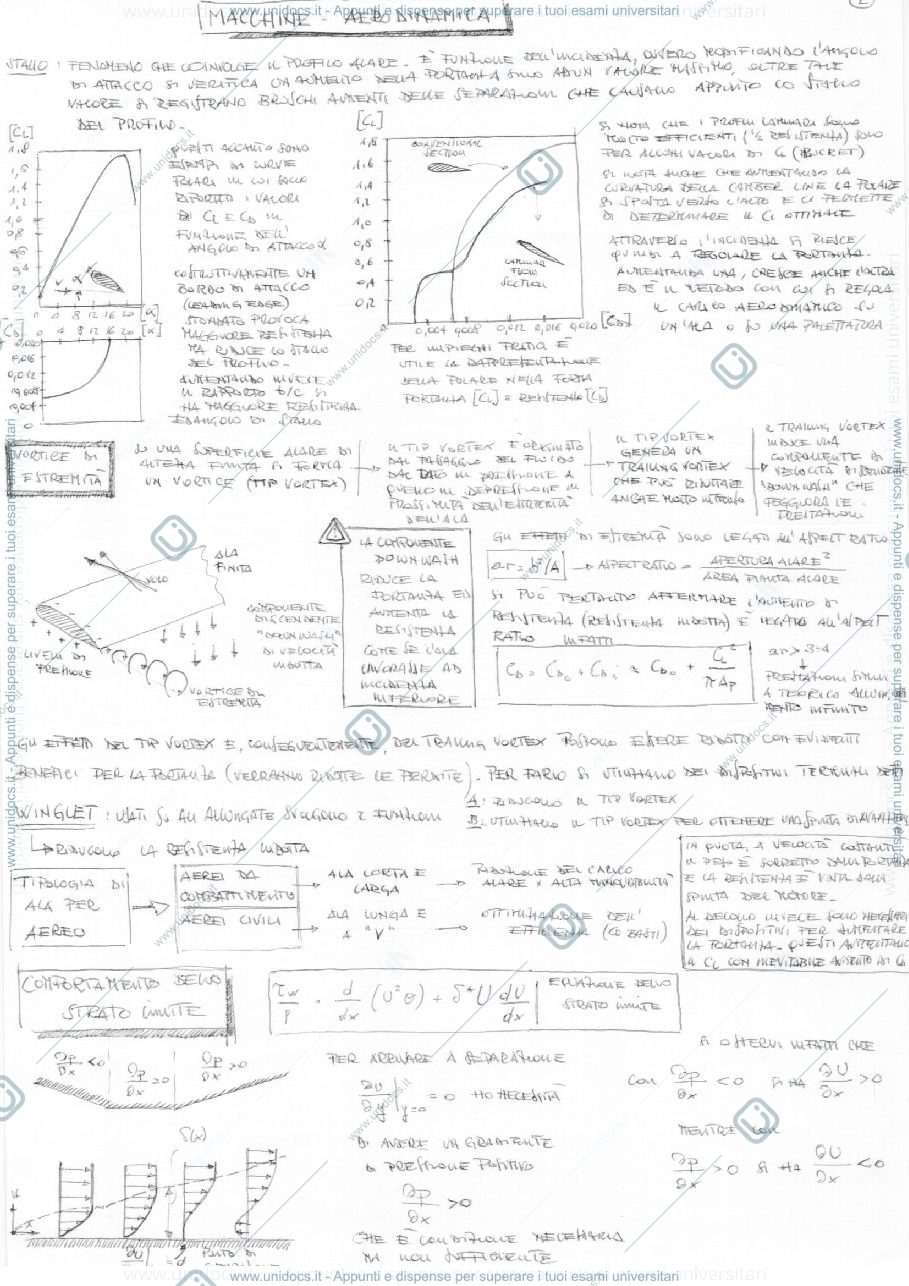 www.unidocs.it - Appunti e dispense per superare i tuoi esami universitari
MACCHINE - AERODINAMICA
STALLO : FENOMENO CHE COINVOLGE IL PROFILO ALARE. È FUNZIONE DELL'INCIDENZA, OVVERO MODIFICANDO L'ANGOLO
DI ATTACCO SI VERIFICA UN AUMENTO DELLA PORTANZA SINO AD UN VALORE MASSIMO, OLTRE TALE
VALORE SI REGISTRANO BRUSCHI AUMENTI DELLE SEPARAZIONI CHE CAUSANO APPUNTO LO STALLO
DEL PROFILO.
[CL]
1,8
1,6
1,4
1,2
1,0
0,8
0,6
0,4
0,2
0 4 8 12 16 20 [α]
[CD]
0 4 8 12 16 20 [α]
0,020
0,016
0,012
0,008
0,004
QUESTI ACCANTO SONO
ESEMPI DI CURVE
POLARI IN CUI SONO
RIPORTATI I VALORI
DI CL E CD IN
FUNZIONE DELL'
ANGOLO DI ATTACCO α
COSTRUTTIVAMENTE UN
BORDO DI ATTACCO
(LEADING EDGE)
STONDATO PROVOCA
MAGGIORE RESISTENZA
MA RIDUCE LO STALLO
DEL PROFILO.
AUMENTANDO INVECE
IL RAPPORTO t/c SI
HA MAGGIORE RESISTENZA
ED ANGOLO DI STALLO
[CL]
1,8
1,6
1,4
1,2
1,0
0,8
0,6
0,4
0,2
CONVENTIONAL
SECTION
LAMINAR
FLOW
SECTION
0,004 0,008 0,012 0,016 0,020 [CD]
PER IMPIEGHI PRATICI È
UTILE LA RAPPRESENTAZIONE
DELLA POLARE NELLA FORMA
PORTANZA [CL] = RESISTENZA [CD]
SI NOTA CHE I PROFILI LAMINARI SONO
MOLTO EFFICIENTI (½ RESISTENZA) SOLO
PER ALCUNI VALORI DI CL (BUCKET)
SI NOTA ANCHE CHE AUMENTANDO LA
CURVATURA DELLA CAMBER LINE LA POLARE
SI SPOSTA VERSO L'ALTO E CI PERMETTE
DI DETERMINARE IL CL OTTIMALE
ATTRAVERSO L'INCIDENZA SI RIESCE
QUINDI A REGOLARE LA PORTANZA.
AUMENTANDA UNA, CRESCE ANCHE L'ALTRA
ED È IL METODO CON CUI SI REGOLA
IL CARICO AERODINAMICO SU
UN'ALA O SU UNA PALETTATURA
VORTICE DI
ESTREMITÀ
SU UNA SUPERFICIE ALARE DI
ALTEZZA FINITA SI FORMA
UN VORTICE (TIP VORTEX)
IL TIP VORTEX È ORIGINATO
DAL PASSAGGIO DEL FLUIDO
DAL LATO IN PRESSIONE A
QUELLO IN DEPRESSIONE IN
PROSSIMITÀ DELL'ESTREMITÀ
DELL'ALA
IL TIP VORTEX
GENERA UN
TRAILING VORTEX
CHE PUÒ RISULTARE
ANCHE MOLTO INTENSO
IL TRAILING VORTEX
INDUCE UNA
COMPONENTE DI
VELOCITÀ DISCENDENTE
"DOWNWASH" CHE
PEGGIORA LE
PRESTAZIONI
VOLO
ALA
FINITA
LIVELLI DI
PRESSIONE
COMPONENTE
DISCENDENTE
"DOWNWASH"
DI VELOCITÀ
INDOTTA
VORTICE DI
ESTREMITÀ
LA COMPONENTE
DOWNWASH
RIDUCE LA
PORTANZA ED
AUMENTA LA
RESISTENZA
COME SE L'ALA
LAVORASSE AD
INCIDENZA
INFERIORE
GLI EFFETTI DI ESTREMITÀ SONO LEGATI ALL'ASPECT RATIO
ar = b²/A → ASPECT RATIO = APERTURA ALARE² / AREA PIANTA ALARE
SI PUÒ PERTANTO AFFERMARE L'AUMENTO DI
RESISTENZA (RESISTENZA INDOTTA) È LEGATA ALL'ASPECT
RATIO INFATTI
CD = CD0 + CDi ≈ CD0 + CL²/πAR
ar > 3÷4
PRESTAZIONI SIMILI
A TEORICO ALLUNGA-
MENTO INFINITO
GLI EFFETTI DEL TIP VORTEX E, CONSEGUENTEMENTE, DEL TRAILING VORTEX POSSONO ESSERE RIDOTTI CON EVIDENTI
BENEFICI PER LA PORTANZA (VERRANNO RIDOTTE LE PERDITE). PER FARLO SI UTILIZZANO DEI DISPOSITIVI TERMINALI DETTI
WINGLET : USATI SU ALI ALLUNGATE SVOLGONO 2 FUNZIONI
A : RIDUCONO IL TIP VORTEX
B : UTILIZZANO IL TIP VORTEX PER OTTENERE UNA SPINTA DI AVANZAMENTO
RIDUCONO LA RESISTENZA INDOTTA
TIPOLOGIA DI
ALA PER
AEREO
AEREI DA
COMBATTIMENTO
AEREI CIVILI
ALA CORTA E
LARGA
RIDUZIONE DEL CARICO
ALARE × ALTA MANOVRABILITÀ
ALA LUNGA E
A "V"
OTTIMIZZAZIONE DELL'
EFFICIENZA (CD BASSI)
IN QUOTA, A VELOCITÀ COSTANTE
IL PESO È SORRETTO DALLA PORTANZA
E LA RESISTENZA È VINTA DALLA
SPINTA DEL MOTORE.
AL DECOLLO INVECE SONO NECESSARI
DEI DISPOSITIVI PER AUMENTARE
LA PORTANZA. QUESTI AUMENTANO
IL CL CON INEVITABILE AUMENTO DI CD
COMPORTAMENTO DELLO
STRATO LIMITE
τw/ρ = d/dx (U²θ) + δ* U dU/dx
EQUAZIONE DELLO
STRATO LIMITE
∂p/∂x < 0
∂p/∂x = 0
∂p/∂x > 0
δ(x)
PUNTO DI
PER ARRIVARE A SEPARAZIONE
∂u/∂y |y=0 = 0 HO NECESSITÀ
DI AVERE UN GRADIENTE
DI PRESSIONE POSITIVO
∂p/∂x > 0
CHE È CONDIZIONE NECESSARIA
MA NON SUFFICIENTE
SI OSSERVI INFATTI CHE
CON ∂p/∂x < 0 SI HA ∂U/∂x > 0
MENTRE CON
∂p/∂x > 0 SI HA ∂U/∂x < 0
www.unidocs.it - Appunti e dispense per superare i tuoi esami universitari